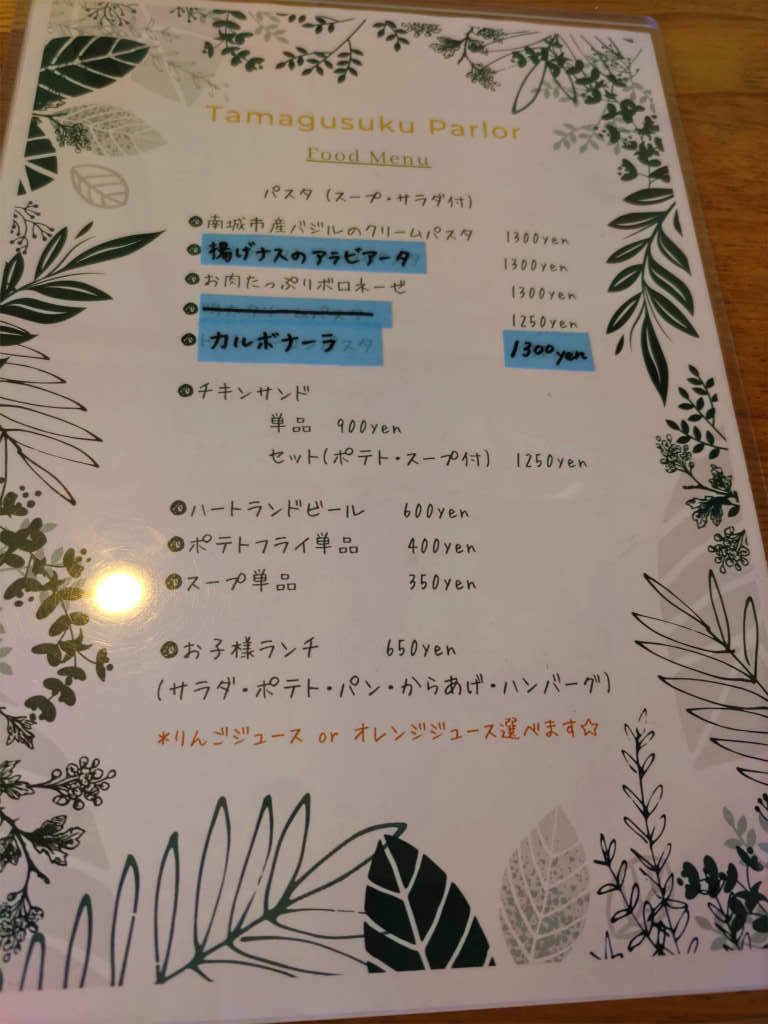 Tamagusuku Parlor
Food Menu
パスタ (スープ・サラダ付)
南城市産バジルのクリームパスタ 1300yen
揚げナスのアラビアータ 1300yen
お肉たっぷりボロネーゼ 1300yen
1250yen
カルボナーラ 1300yen
チキンサンド
単品 900yen
セット(ポテト・スープ付) 1250yen
ハートランドビール 600yen
ポテトフライ単品 400yen
スープ単品 350yen
お子様ランチ 650yen
(サラダ・ポテト・パン・からあげ・ハンバーグ)
*りんごジュース or オレンジジュース選べます☆